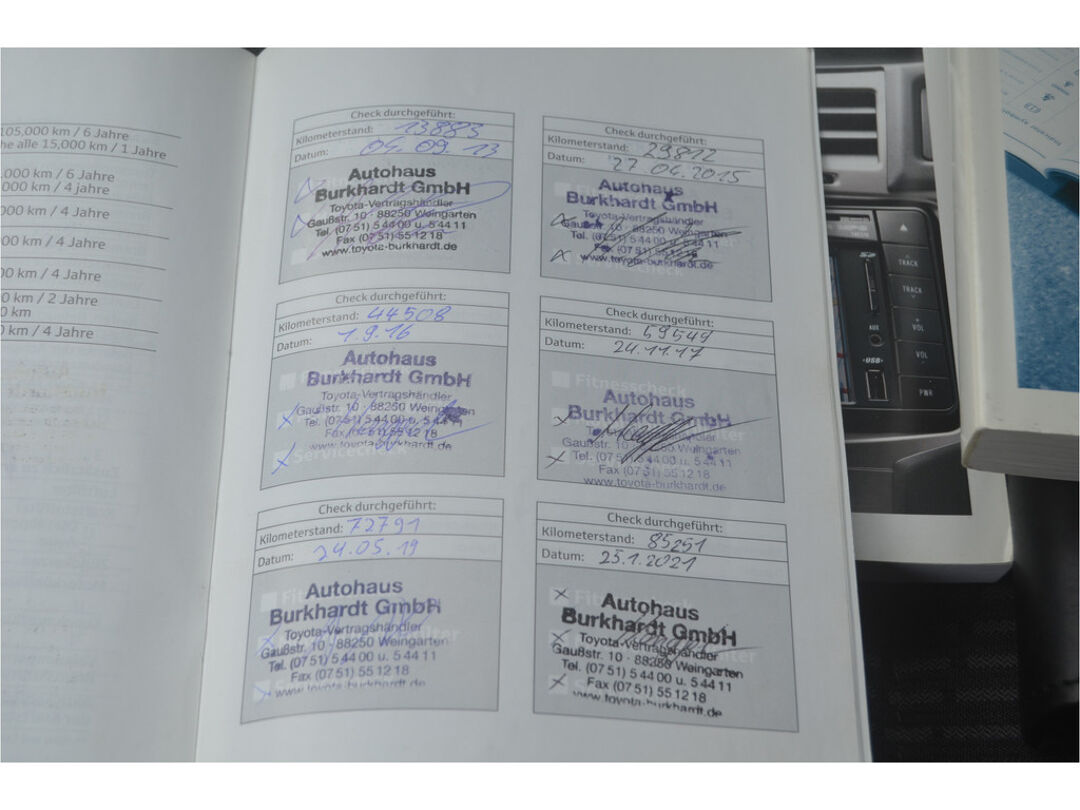 105,000 km / 6 Jahre
he alle 15,000 km / 1 Jahre
000 km / 6 Jahre
000 km / 4 jahre
000 km / 4 Jahre
00 km / 4 Jahre
00 km / 4 Jahre
0 km / 2 Jahre
0 km
0 km / 4 Jahre
Check durchgeführt:
Kilometerstand: 13883
Datum: 04.09.13
Autohaus
Burkhardt GmbH
Toyota-Vertragshändler
Gaußstr. 10 · 88250 Weingarten
Tel. (07 51) 5 44 00 u. 5 44 11
Fax (07 51) 55 12 18
www.toyota-burkhardt.de
Check durchgeführt:
Kilometerstand: 29812
Datum: 27.04.2015
Autohaus
Burkhardt GmbH
Toyota-Vertragshändler
Gaußstr. 10 · 88250 Weingarten
Tel. (07 51) 5 44 00 u. 5 44 11
Fax (07 51) 55 12 18
www.toyota-burkhardt.de
Servicecheck
Check durchgeführt:
Kilometerstand: 44508
Datum: 1.9.16
Autohaus
Burkhardt GmbH
Toyota-Vertragshändler
Gaußstr. 10 · 88250 Weingarten
Tel. (07 51) 5 44 00 u. 5 44 11
Fax (07 51) 55 12 18
www.toyota-burkhardt.de
Servicecheck
Check durchgeführt:
Kilometerstand: 59549
Datum: 24.11.17
Fitnesscheck
Autohaus
Burkhardt GmbH
Toyota-Vertragshändler
Gaußstr. 10 · 88250 Weingarten
Tel. (07 51) 5 44 00 u. 5 44 11
Fax (07 51) 55 12 18
www.toyota-burkhardt.de
Check durchgeführt:
Kilometerstand: 72791
Datum: 24.05.19
Autohaus
Burkhardt GmbH
Toyota-Vertragshändler
Gaußstr. 10 · 88250 Weingarten
Tel. (07 51) 5 44 00 u. 5 44 11
Fax (07 51) 55 12 18
www.toyota-burkhardt.de
Check durchgeführt:
Kilometerstand: 85251
Datum: 25.1.2021
Autohaus
Burkhardt GmbH
Toyota-Vertragshändler
Gaußstr. 10 · 88250 Weingarten
Tel. (07 51) 5 44 00 u. 5 44 11
Fax (07 51) 55 12 18
www.toyota-burkhardt.de
SD
TRACK
TRACK
AUX
VOL
USB
VOL
PWR